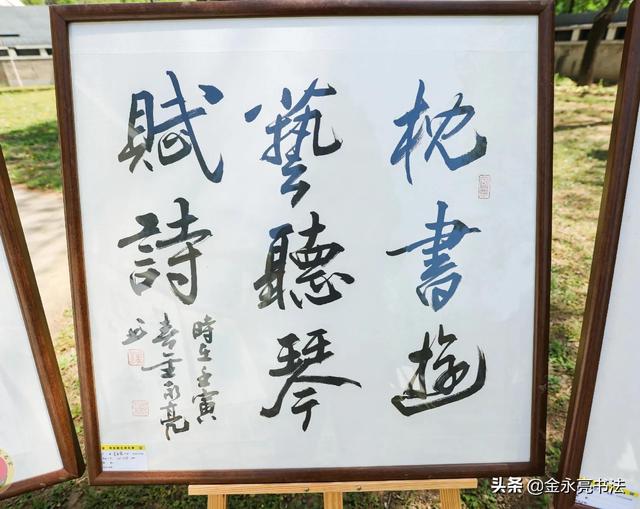 枕書遊
藝聽琴
賦詩
時在壬寅
春金永亮
书
头条 @金永亮书法